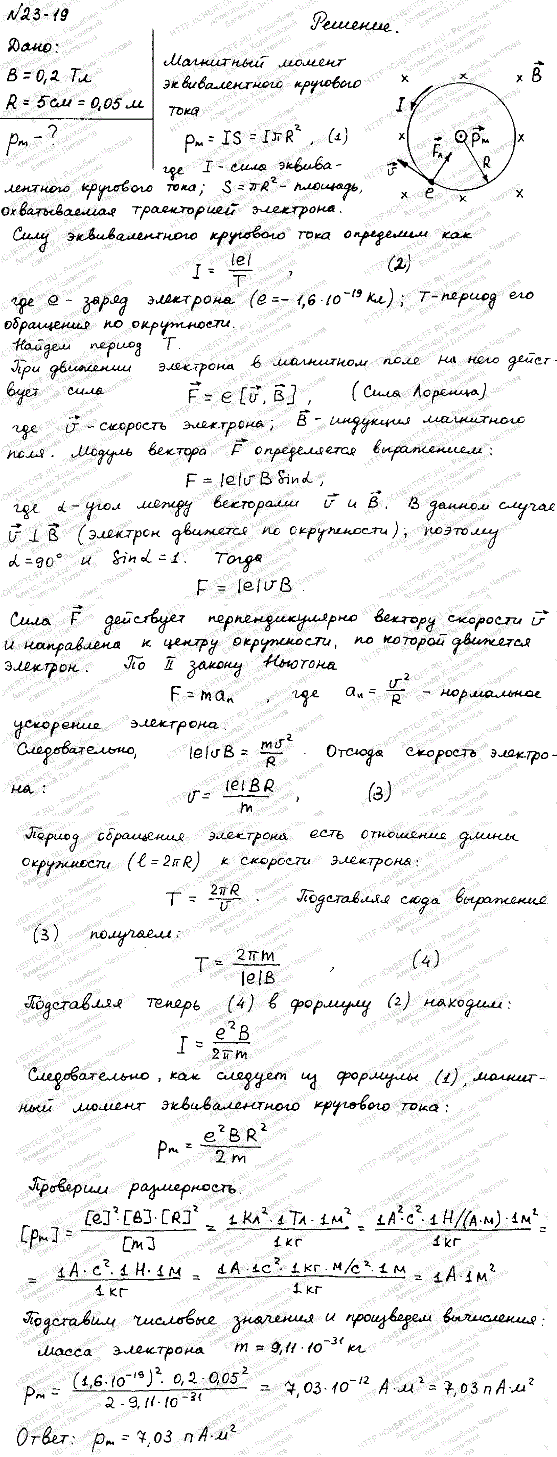 №23-19
Решение.
Дано:
B = 0,2 Тл
R = 5 см = 0,05 м
pm - ?
Магнитный момент
эквивалентного кругового
тока
pm = IS = IπR² , (1)
где I - сила эквива-
лентного кругового тока; S = πR² - площадь,
охватываемая траекторией электрона.
I
B⃗
p⃗m
F⃗л
R
v⃗
e
Силу эквивалентного кругового тока определим как
I = |e|/T , (2)
где e - заряд электрона (e = - 1,6·10⁻¹⁹ Кл); T - период его
обращения по окружности.
Найдем период T.
При движении электрона в магнитном поле на него дейст-
вует сила F⃗ = e[v⃗, B⃗] , (Сила Лоренца)
где v⃗ - скорость электрона; B⃗ - индукция магнитного
поля. Модуль вектора F⃗ определяется выражением:
F = |e|vB Sinα,
где α - угол между векторами v⃗ и B⃗. В данном случае
v⃗ ⊥ B⃗ (электрон движется по окружности), поэтому
α = 90° и Sinα = 1. Тогда
F = |e|vB.
Сила F⃗ действует перпендикулярно вектору скорости v⃗
и направлена к центру окружности, по которой движется
электрон. По II закону Ньютона
F = man , где an = v²/R - нормальное
ускорение электрона.
Следовательно, |e|vB = mv²/R . Отсюда скорость электро-
на: v = |e|BR/m , (3)
Период обращения электрона есть отношение длины
окружности (l = 2πR) к скорости электрона:
T = 2πR/v . Подставляя сюда выражение
(3) получаем:
T = 2πm/|e|B , (4)
Подставляя теперь (4) в формулу (2) находим:
I = e²B/2πm
Следовательно, как следует из формулы (1), магнит-
ный момент эквивалентного кругового тока:
pm = e²BR²/2m
Проверим размерность.
[pm] = [e]²·[B]·[R]²/[m] = 1Кл²·1Тл·1м²/1кг = 1А²·с²·1Н/(А·м)·1м²/1кг =
= 1А·с²·1Н·1м/1кг = 1А·1с²·1кг·м/с²·1м/1кг = 1А·1м²
Подставим числовые значения и произведем вычисления:
масса электрона m = 9,11·10⁻³¹ кг
pm = (1,6·10⁻¹⁹)²·0,2·0,05²/2·9,11·10⁻³¹ = 7,03·10⁻¹² А·м² = 7,03 пА·м²
Ответ: pm = 7,03 пА·м²